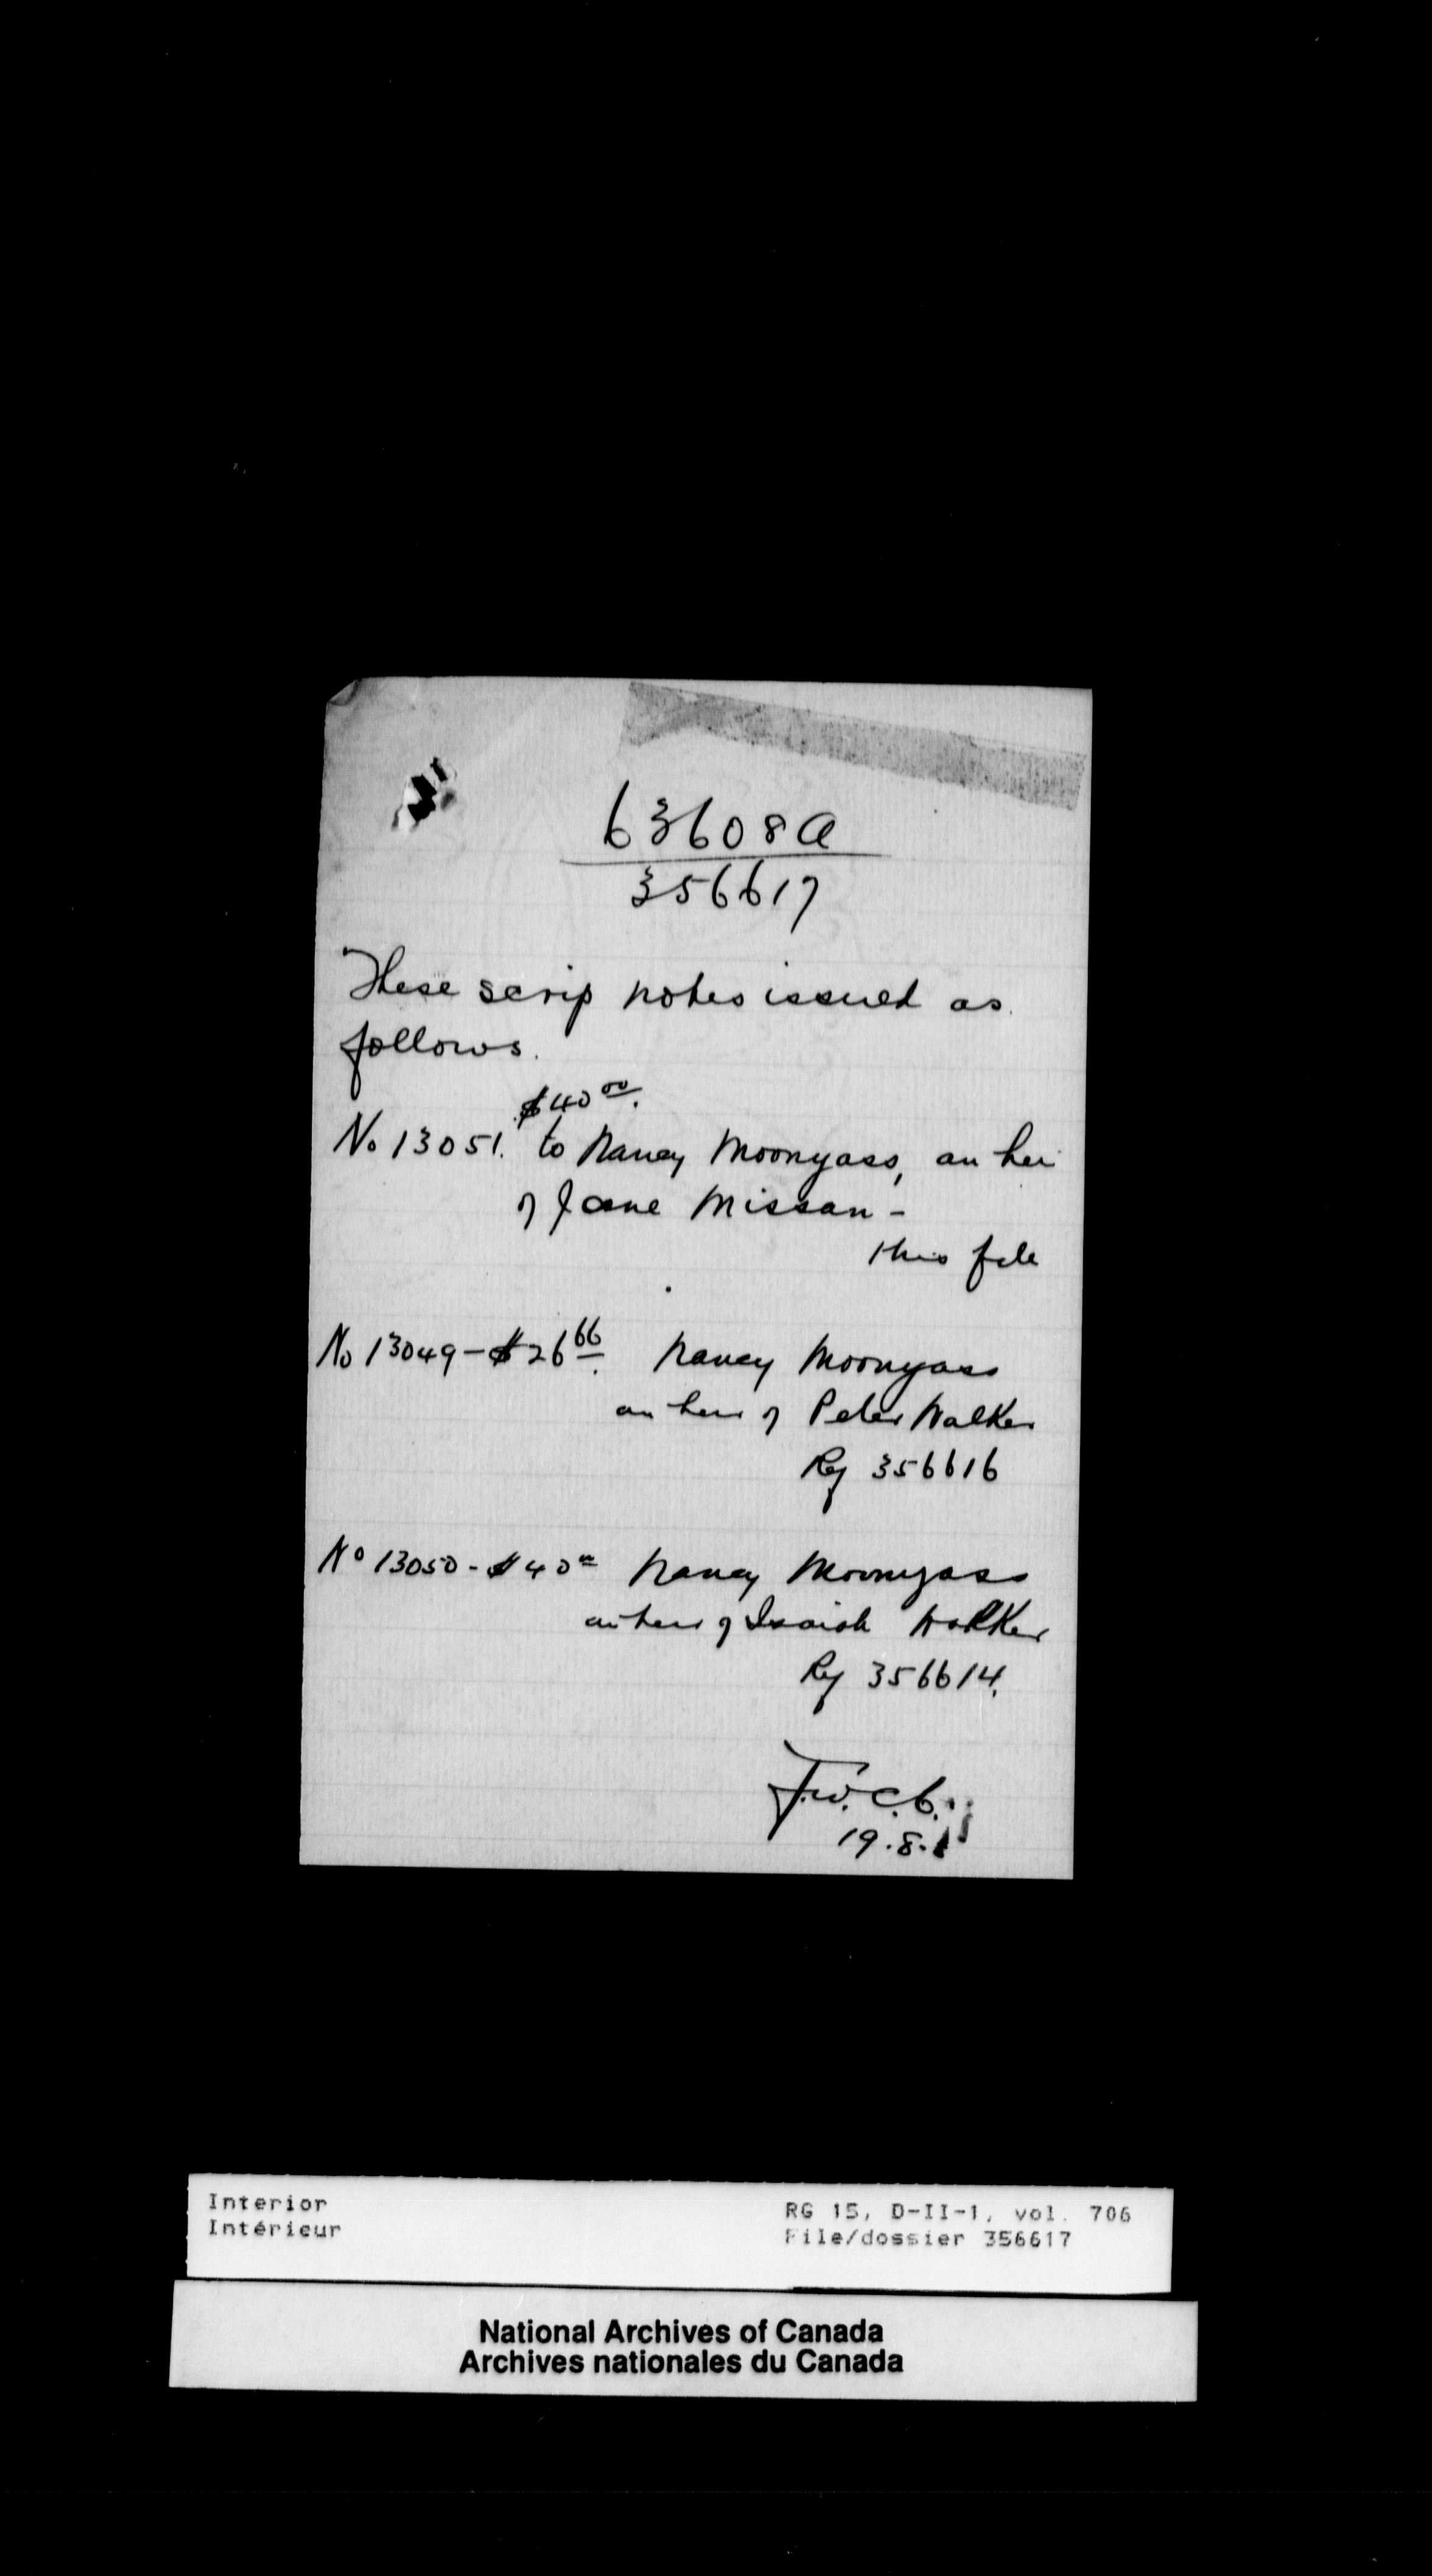 63608a
356617
These scrip notes issued as
follows.
$40 00.
No 13051. to Nancy Moonyass, an heir
of Jane Missan -
this file
No 13049 - $26 66. Nancy Moonyass
an heir of Peter Walker
Reg 356616
No 13050 - $40 00 Nancy Moonyass
an heir of Isaiah Walker
Reg 356614.
19.8.
Interior
Intérieur
RG 15, D-II-1, vol. 706
File/dossier 356617
National Archives of Canada
Archives nationales du Canada